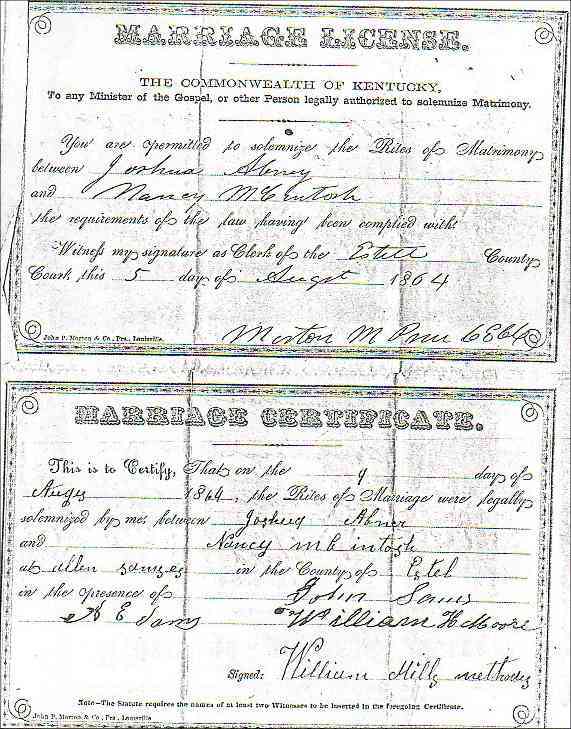 MARRIAGE LICENSE.
THE COMMONWEALTH OF KENTUCKY,
To any Minister of the Gospel, or other Person legally authorized to solemnize Matrimony.
You are permitted to solemnize the Rites of Matrimony
between Joshua Abney
and Nancy McEntosh
the requirements of the law having been complied with:
Witness my signature as Clerk of the Estell County
Court, this 5 day of Augst 1864
Merton M
John P. Morton & Co., Prs., Louisville.
MARRIAGE CERTIFICATE.
This is to Certify, That on the 9 day of
Augs 1864, the Rites of Marriage were legally
solemnized by me, between Joshua Abner
and Nancy mc intosh
at Allen in the County of Estel
in the presence of John
E William H Moore
Signed: William Mills
Note—The Statute requires the names of at least two Witnesses to be inserted in the foregoing Certificate.
John P. Morton & Co., Prs., Louisville